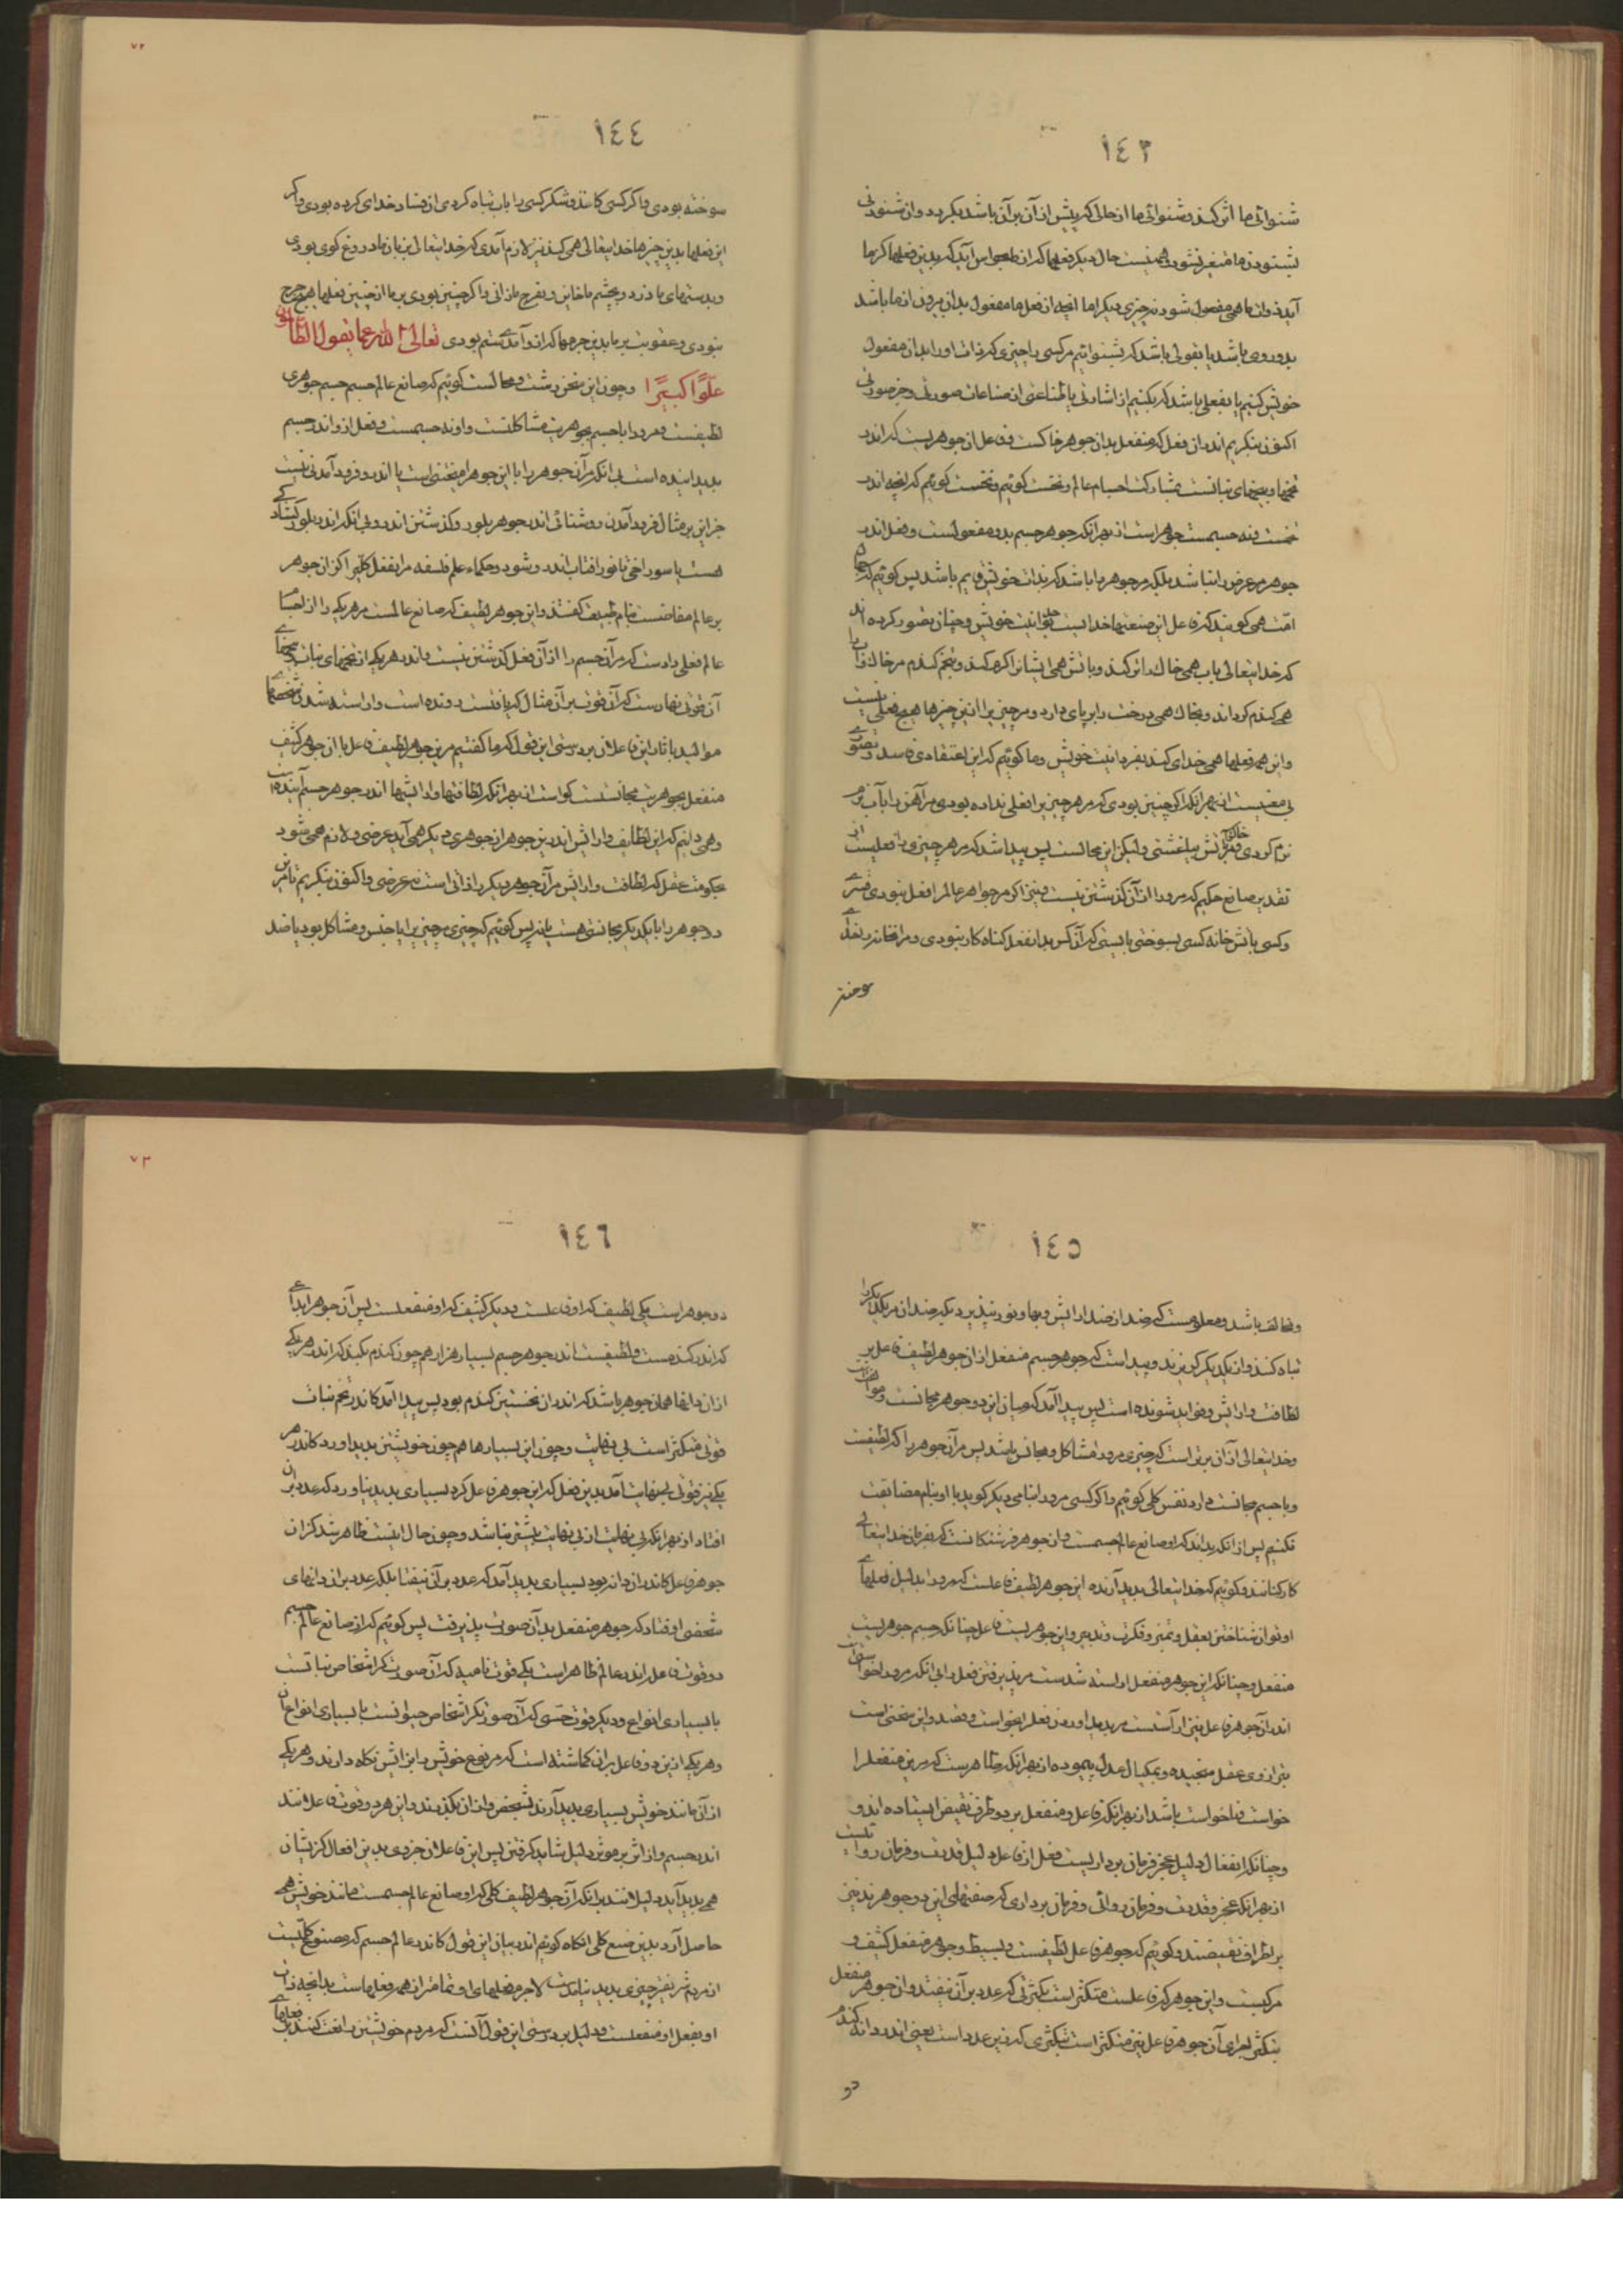 ١٤٣
شنوائی ما اثر کند و شنوائی ما از حالی که پیش از آن بر آن باشد بگردد و از شنودنی
بشنودن ما متغیر نشود و همینست حال دیگر فعلها که از ما بحواس آید که بدین فعلها کز ما
آید ذوات ما همی مفعول شود نه چیزی دیگر اما انچه از فعل ما مفعول بدان بیرون از ما باشد
بدو روی باشد یا بقولی باشد که بشنوانیم مر کسی را چیزی که ذات او را بدان مفعول
خویش کنیم یا بفعلی باشد که بکنیم از اشارتی یا صناعتی از صناعات صورتی و جز صورتی
اکنون بنگریم اندران فعل که منفعل بدان جوهر خاکست و فاعل آن جوهریست که اندر
تخمها و بیخهای نباتست بمشارکت اجسام عالم و نخست گوئیم که انچه اندر
تخمست و نه جسمست جوهر است از بهر آنکه جوهر جسم بدو مفعولست و فعل اندر
جوهر مر عرض را نباشد بلکه مر جوهر را باشد که بذات خویش قایم باشد پس گوئیم که عامه
امت همی گویند که فاعل این صنعتها خدایست بوحدانیت خویش و چنان تصور کرده اند
که خدایتعالی بآب همی خاک را تر کند و باتش همی ایشانرا گرم کند و بتخم گندم مر خاک و آب را
همی گندم گرداند و بخاک همی درخت را بر پای دارد و مر چیزی را از این چیزها هیچ فعلی نیست
و این همه فعلها همی خدای کند بفردانیت خویش و ما گوئیم که این اعتقادی فاسد و تصوری
بی معنیست از بهر آنکه اگر چنین بودی که مر هر چیزی را فعلی نداده بودی مر آهن را بآب نرم
نرم کردی و خاک بر آتش بیاغشتی ولیکن این محالست پس پیدا شد که مر هر چیزی را فعلیست از
تقدیر صانع حکیم که مرو را از آن گذشتن نیست و نیز اگر مر جواهر عالم را فعل نبودی
و کسی باتش خانه کسی بسوختی بایستی که آن کس بدان فعل گناه کار نبودی و مر آنخانه را خدای
سوخته
١٤٤
سوخته بودی و اگر کسی کاغذ و شکر کسی را بآب تباه کردی آن فساد خدای کرده بودی و اگر
این فعلها بدین چیزها خدایتعالی همی کند نیز لازم آمدی که خدایتعالی بزبان ما دروغ گوی بودی
و بدستهای ما دزد و بچشم ما خاین و بفرج ما زانی و اگر چنین بودی بر ما از چنین فعلها هیچ حرج
نبودی و عقوبت بر ما بدین جرمها که ازو آمدی ستم بودی تعالی الله عما یقول الظالمون
علوا کبیرا و چون این سخن زشت و محالست گوئیم که صانع عالم جسم جوهری
لطیفست و مرو را با جسم بجوهریت مشاکلتست و او نه جسمست و فعل ازو اندر جسم
پدید آینده است بی آنکه مر آن جوهر را با این جوهر امیختنی است یا اندرو فرود آمدنی نیست
جز این بر مثال فرود آمدن روشنائی اندر جوهر بلور و گذشتن اندرو بی آنکه اندر بلور گشادگی
هست یا سوراخی تا نور آفتاب اندرو شود و حکماء علم فلسفه مر آن فعل کلی را کز آن جوهر
بر عالم مفاضست بنام طبیعت گفتند و این جوهر لطیف که صانع عالمست مر هر یکی را از اجسام
عالم فعلی دادست که مر آن جسم را از آن فعل گذشتن نیست و اندر هر یکی از تخمهای نبات و بیخهای
آن قوتی نهادست که آن قوت بر آن مثال که یافتست رونده است و اراسته شدن تخمها
موالید با ثار این فاعلان بر درستی این قول که ما گفتیم مر این جوهر لطیف فاعل را با آن جوهر کثیف
منفعل بجوهریت مجانستست گواست از بهر آنکه لطافتها و ارایشها اندر جوهر جسم آینده است
و همی دانیم که این لطایف و ارایش اندرین جوهر از جوهری دیگر همی آید عرضی و لازم همی شود
بحکومت عقل که لطافت و ارایش مر آن جوهر دیگر را ذاتی است نه عرضی و اکنون بنگریم تا مر این
دو جوهر را با یکدیگر مجانستی هست یا نه پس گوئیم که چیزی مر چیزی را یا جنس و مشاکل بود یا ضد
١٤٥
و مخالف باشد و معلومست که ضد از ضد ارایش و بها و نور نپذیرد بلکه ضدان مر یکدیگر را
تباه کنند و از یکدیگر گریزند و پیدا است که جوهر جسم منفعل از آن جوهر لطیف فاعل پر
لطافت و ارایش و فواید شونده است پس پیدا آمد که میان این دو جوهر مجانست و موافقت است
و خدایتعالی از آن برتر است که چیزی مرو را مشاکل و مجانس باشد پس مر آن جوهر را که لطیفست
و با جسم مجانست دارد نفس کلی گوئیم و اگر کسی مرو را بنامی دیگر گوید با او بنام مضایقت
نکنیم پس از آنکه بداند که او صانع عالم جسمست و آن جوهر فرشتگانست که بفرمان خدایتعالی
کار کنانند و گوئیم که خدایتعالی پدید آرنده این جوهر لطیف فاعلست که مرو را بدلیل فعلهای
او توان شناختن بعقل و تمیز و فکرت و تدبیر و این جوهریست فاعل چنانکه جسم جوهریست
منفعل و چنانکه این جوهر منفعل اراسته شدست مر پذیرفتن فعل را بی انکه مرو را خواستی
اندر آن جوهر فاعل نیز ار آستست مر پدید اوردن فعل را بخواست و قصد و این سخنی است
بترازوی عقل سنجیده و بمکیال عدل پیموده از بهر آنکه ظاهر است که مر این منفعل را
خواست نیست تا خواست باشد از بهر آنکه فاعل و منفعل بر دو طرف نقیض ایستاده اند و
و چنانکه انفعال دلیل عجز و فرمان برداریست فعل از فاعل دلیل قدرت و فرمان روائیست
از بهر آنکه عجز و قدرت و فرمان روائی و فرمان برداری که صفتهای این دو جوهرند نیز
بر اطراف نقیضند و گوئیم که جوهر فاعل لطیفست و بسیط و جوهر منفعل کثیف و
مرکبست و این جوهر که فاعلست متکثر است بکثرتی که عدد بر آن نیفتد و آن جوهر منفعل
متکثر برای آن جوهر فاعل نیز متکثر است بکثرتی که زیر عدد است یعنی اندر دانه گندم
دو
١٤٦
دو جوهر است یکی لطیف که او فاعلست و دیگر کثیف که او منفعلست پس آن جوهر ابداعی
که اندر گندمست و لطیفست اندر جوهر جسم بسیار هزار هم چون گندم بکند که اندر هر یکی
از آن دانها همان جوهر باشد که اندران نخستین گندم بود پس پیدا آمد کاندر تخم نبات
قوتی متکثر است بی نهایت و چون این بسیارها هم چون خویشتن پدید اورد کاندر هر
یکی نیز قوتی بینهایت آمد بدین فعل که این جوهر فاعل کرد بسیاری پدید نیاورد که عدد بر آن
افتاد از بهر آنکه بی نهایت از بی نهایت بیشتر نباشد و چون حال اینست ظاهر شد کز آن
جوهر فاعل کاندر آن دانه بود بسیاری پدید آمد که عدد بر آن نیفتاد بلکه عدد بر آن دانهای
شخصی اوفتاد که جوهر منفعل بدان صورت پذیرفت پس گوئیم که از صانع عالم جسم
دو قوت فاعل اندر عالم ظاهر است یکی قوت نامیه که آن صورتگر اشخاص نباتست
با بسیاری انواع و دیگر قوت حسی که آن صورتگر اشخاص حیوانست با بسیاری انواع آن
و هر یکی از این دو فاعل بر آن گماشته است که مر نوع خویش را بزایش نگاه دارند و هر یکی
از آن مانند خویش بسیاری پدید آرند بشخص و از آن نگذرند و این هر دو قوت فاعلانند
اندر جسم و از اثر بر موثر دلیل شاید گرفتن پس این فاعلان جزوی بدین افعال کز ایشان
همی پدید آید دلیلانند بر آنکه آن جوهر لطیف کلی که او صانع عالم جسمست مانند خویش همی
حاصل آرد بدین صنع کلی انگاه گوئیم اندر بیان این قول کاندر عالم جسم که مصنوع کلیست
از مردم شریفتر چیزی پدید نیامدست لاجرم فعلهای او تمامتر از همه فعلهاست بدانچه ذات
او بفعل او منفعلست و دلیل بر درستی این قول آنست که مردم خویشتن را لعنت کند بر فعلهای